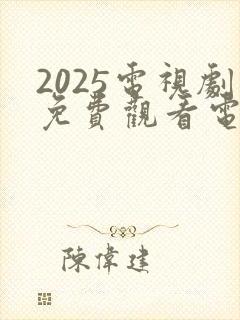 2025電視劇
免費觀看電
陳偉建